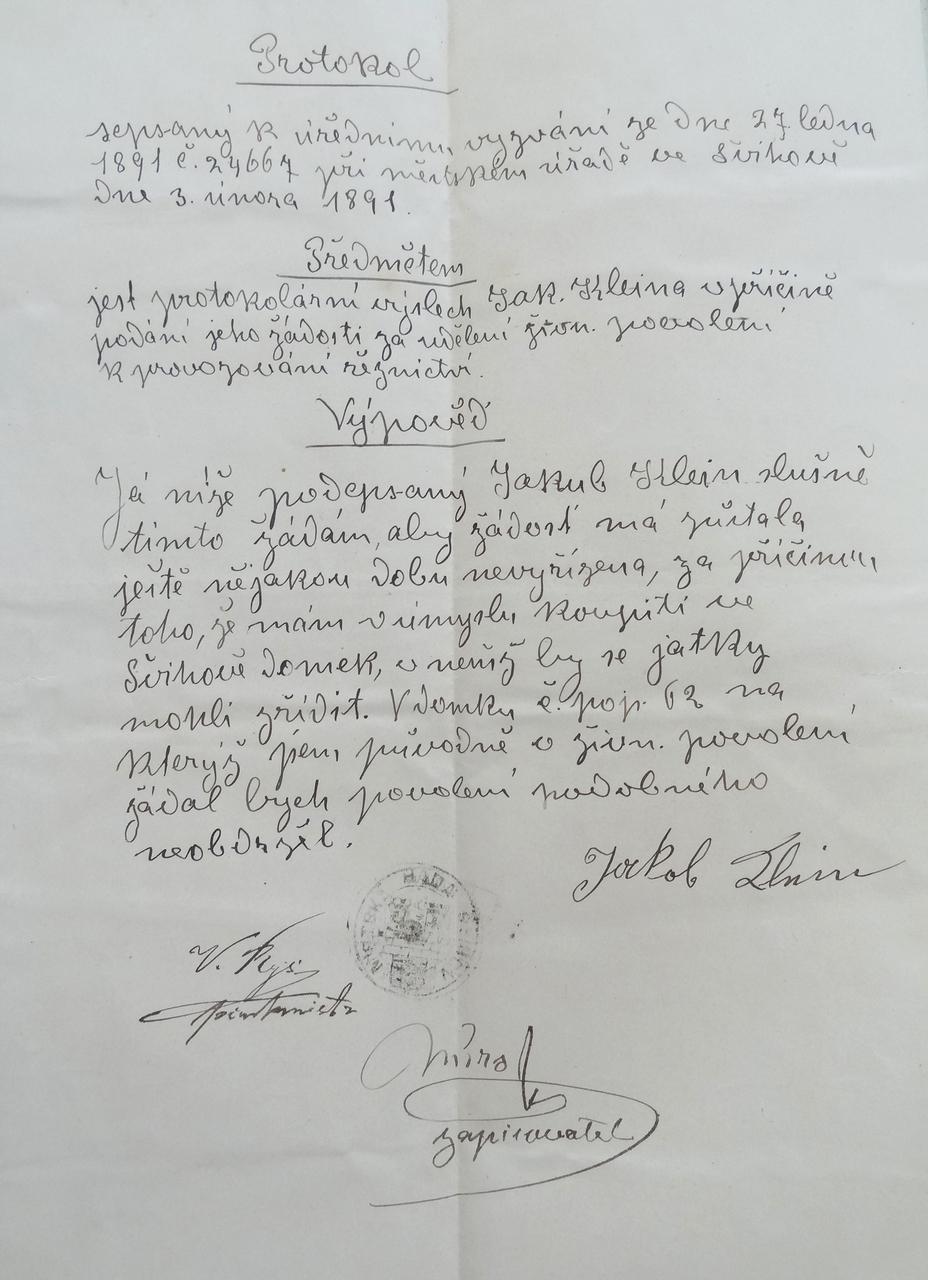 Protokol
sepsaný k úřednímu vyzvání ze dne 27 ledna
1891 č. 24667 při městském úřadě ve Švihově
dne 3. února 1891.
Předmětem
jest protokolární výslech Jak. Kleina v příčině
podání jeho žádosti za udělení živn. povolení
k provozování řeznictví.
Výpověď
Já níže podepsaný Jakub Klein slušně
tímto žádám, aby žádost má zůstala
ještě nějakou dobu nevyřízena, za příčinou
toho, že mám v úmyslu koupiti ve
Švihově domek, v němž by se jatky
mohli zřídit. V domku č. pop. 62 na
kterýž jsem původně o živn. povolení
žádal bych povolení podobného
neobdržel.
Jakob Klein
MĚSTSKÁ RADA
V. Ryš
zapisovatel